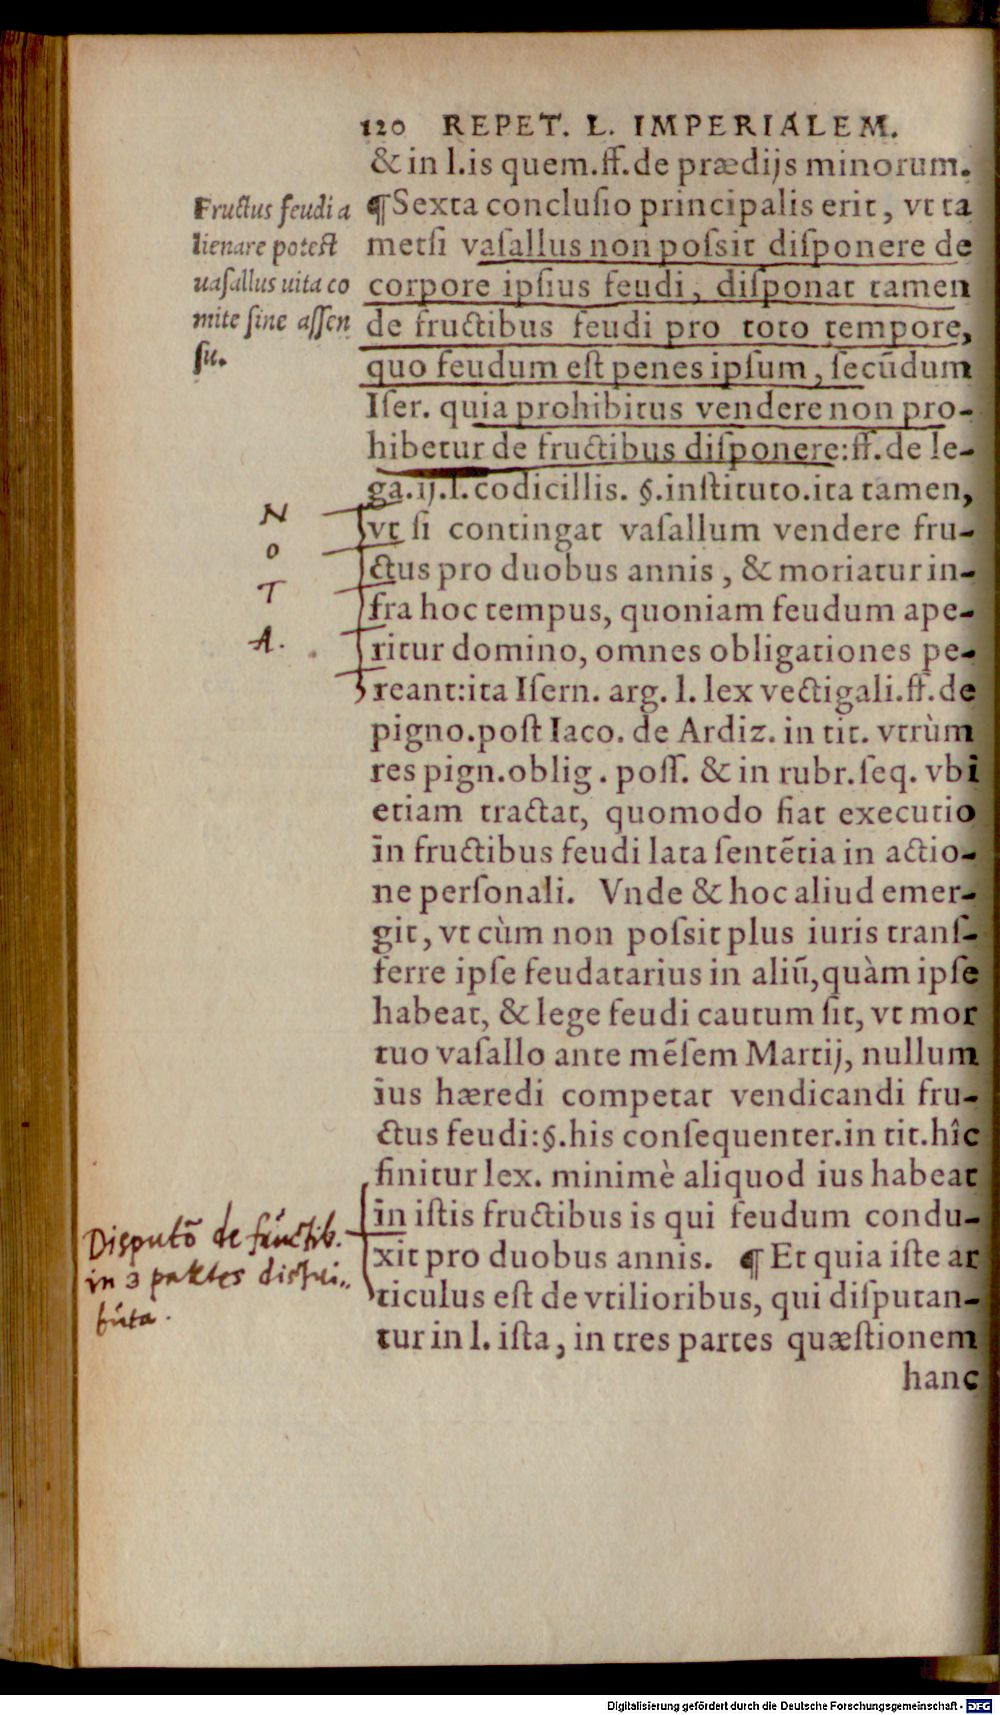 120 REPET. L. IMPERIALEM.
& in l. is quem. ff. de prædijs minorum.
Fructus feudi a
lienare potest
uasallus uita co
mite sine assen
su.
¶ Sexta conclusio principalis erit, vt ta
metsi vasallus non possit disponere de
corpore ipsius feudi, disponat tamen
de fructibus feudi pro toto tempore,
quo feudum est penes ipsum, secūdum
Iser. quia prohibitus vendere non pro-
hibetur de fructibus disponere: ff. de le-
ga. ij. l. codicillis. §. instituto. ita tamen,
N
O
T
A.
vt si contingat vasallum vendere fru-
ctus pro duobus annis, & moriatur in-
fra hoc tempus, quoniam feudum ape-
ritur domino, omnes obligationes pe-
reant: ita Isern. arg. l. lex vectigali. ff. de
pigno. post Iaco. de Ardiz. in tit. vtrùm
res pign. oblig. poss. & in rubr. seq. vbi
etiam tractat, quomodo fiat executio
in fructibus feudi lata sentētia in actio-
ne personali. Vnde & hoc aliud emer-
git, vt cùm non possit plus iuris trans-
ferre ipse feudatarius in aliū, quàm ipse
habeat, & lege feudi cautum sit, vt mor
tuo vasallo ante mēsem Martij, nullum
ius hæredi competat vendicandi fru-
ctus feudi: §. his consequenter. in tit. hîc
finitur lex. minimè aliquod ius habeat
in istis fructibus is qui feudum condu-
xit pro duobus annis. ¶ Et quia iste ar
ticulus est de vtilioribus, qui disputan-
tur in l. ista, in tres partes quæstionem
hanc
Disputō de fructib.
in 3 partes distri..
buta.
Digitalisierung gefördert durch die Deutsche Forschungsgemeinschaft - DFG